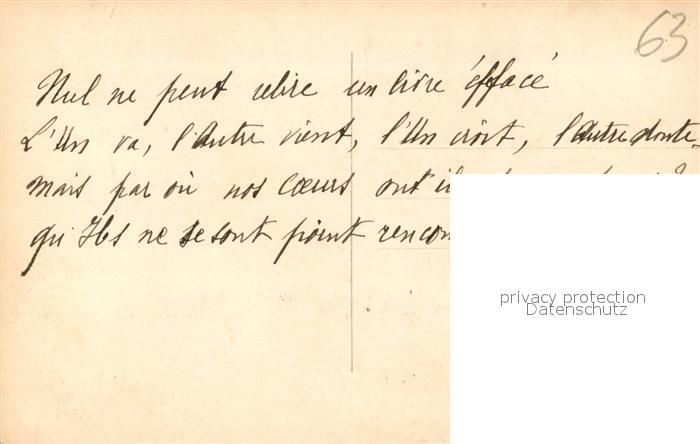 63
Nul ne peut relire un livre éffacé
L'Un va, l'Autre vient, l'Un croit, l'Autre doute-
mais par où nos cœurs ont
qu'Ils ne se sont point
privacy protection
Datenschutz